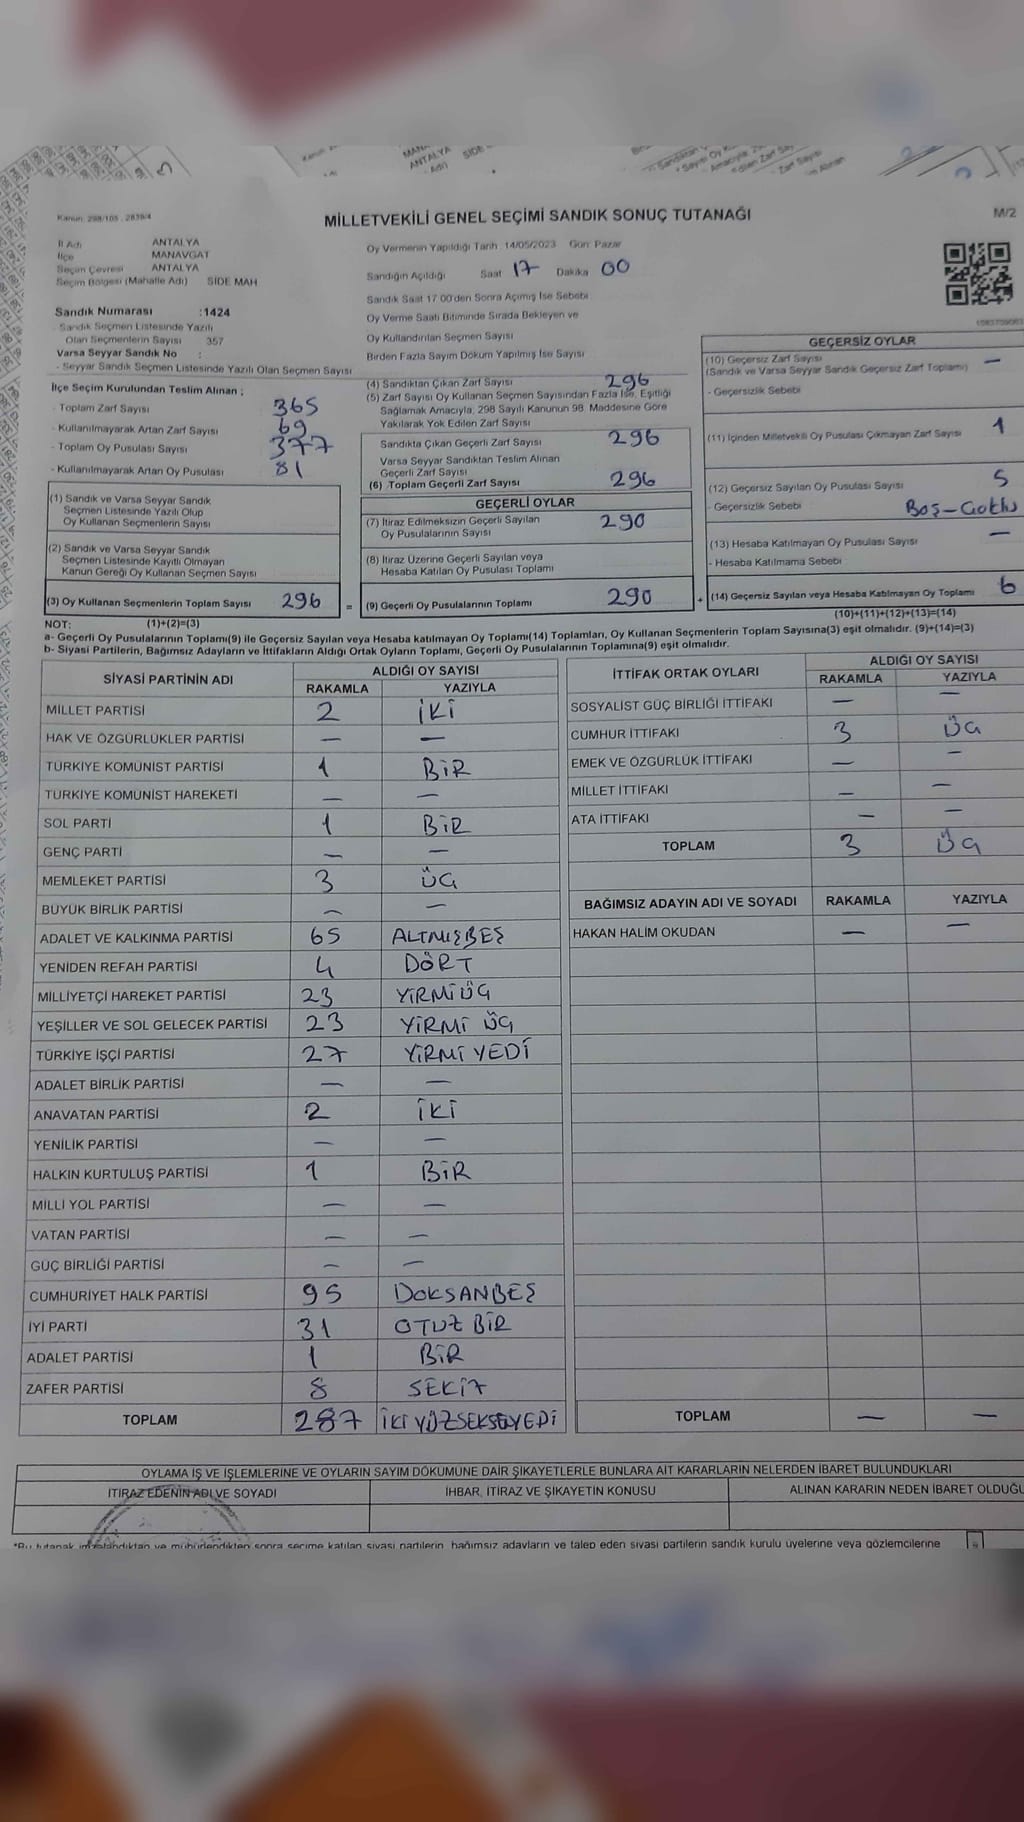 MİLLETVEKİLİ GENEL SEÇİMİ SANDIK SONUÇ TUTANAĞI
M/2
Kanun: 298/105 , 2839/4
İl Adı ANTALYA
İlçe MANAVGAT
Seçim Çevresi ANTALYA
Seçim Bölgesi (Mahalle Adı) SİDE MAH
Sandık Numarası :1424
- Sandık Seçmen Listesinde Yazılı
Olan Seçmenlerin Sayısı 357
Varsa Seyyar Sandık No :
- Seyyar Sandık Seçmen Listesinde Yazılı Olan Seçmen Sayısı
Oy Vermenin Yapıldığı Tarih : 14/05/2023 Gün: Pazar
Sandığın Açıldığı Saat 17 Dakika 00
Sandık Saat 17 00'den Sonra Açımış İse Sebebi
Oy Verme Saati Bitiminde Sırada Bekleyen ve
Oy Kullandırılan Seçmen Sayısı
Birden Fazla Sayım Döküm Yapılmış İse Sayısı
İlçe Seçim Kurulundan Teslim Alınan ;
- Toplam Zarf Sayısı 365
- Kullanılmayarak Artan Zarf Sayısı 69
- Toplam Oy Pusulası Sayısı 377
- Kullanılmayarak Artan Oy Pusulası 81
(1) Sandık ve Varsa Seyyar Sandık
Seçmen Listesinde Yazılı Olup
Oy Kullanan Seçmenlerin Sayısı
(2) Sandık ve Varsa Seyyar Sandık
Seçmen Listesinde Kayıtlı Olmayan
Kanun Gereği Oy Kullanan Seçmen Sayısı
(3) Oy Kullanan Seçmenlerin Toplam Sayısı 296 =
(4) Sandıktan Çıkan Zarf Sayısı 296
(5) Zarf Sayısı Oy Kullanan Seçmen Sayısından Fazla İse, Eşitliği
Sağlamak Amacıyla, 298 Sayılı Kanunun 98. Maddesine Göre
Yakılarak Yok Edilen Zarf Sayısı
Sandıkta Çıkan Geçerli Zarf Sayısı 296
Varsa Seyyar Sandıktan Teslim Alınan
Geçerli Zarf Sayısı
(6) Toplam Geçerli Zarf Sayısı 296
GEÇERLİ OYLAR
(7) İtiraz Edilmeksizin Geçerli Sayılan 290
Oy Pusulalarının Sayısı
(8) İtiraz Üzerine Geçerli Sayılan veya
Hesaba Katılan Oy Pusulası Toplamı
(9) Geçerli Oy Pusulalarının Toplamı 290 +
GEÇERSİZ OYLAR
(10) Geçersiz Zarf Sayısı —
(Sandık ve Varsa Seyyar Sandık Geçersiz Zarf Toplamı)
- Geçersizlik Sebebi
(11) İçinden Milletvekili Oy Pusulası Çıkmayan Zarf Sayısı 1
(12) Geçersiz Sayılan Oy Pusulası Sayısı 5
- Geçersizlik Sebebi Boş-Çoklu
(13) Hesaba Katılmayan Oy Pusulası Sayısı —
- Hesaba Katılmama Sebebi
(14) Geçersiz Sayılan veya Hesaba Katılmayan Oy Toplamı 6
NOT: (1)+(2)=(3)
(10)+(11)+(12)+(13)=(14)
a- Geçerli Oy Pusulalarının Toplamı(9) ile Geçersiz Sayılan veya Hesaba katılmayan Oy Toplamı(14) Toplamları, Oy Kullanan Seçmenlerin Toplam Sayısına(3) eşit olmalıdır. (9)+(14)=(3)
b- Siyasi Partilerin, Bağımsız Adayların ve İttifakların Aldığı Ortak Oyların Toplamı, Geçerli Oy Pusulalarının Toplamına(9) eşit olmalıdır.
SİYASİ PARTİNİN ADI ALDIĞI OY SAYISI
RAKAMLA YAZIYLA
MİLLET PARTİSİ 2 İKİ
HAK VE ÖZGÜRLÜKLER PARTİSİ — —
TÜRKİYE KOMÜNİST PARTİSİ 1 BİR
TÜRKİYE KOMÜNİST HAREKETİ — —
SOL PARTİ 1 BİR
GENÇ PARTİ — —
MEMLEKET PARTİSİ 3 ÜÇ
BÜYÜK BİRLİK PARTİSİ — —
ADALET VE KALKINMA PARTİSİ 65 ALTMIŞBEŞ
YENİDEN REFAH PARTİSİ 4 DÖRT
MİLLİYETÇİ HAREKET PARTİSİ 23 YİRMİÜÇ
YEŞİLLER VE SOL GELECEK PARTİSİ 23 YİRMİ ÜÇ
TÜRKİYE İŞÇİ PARTİSİ 27 YİRMİ YEDİ
ADALET BİRLİK PARTİSİ — —
ANAVATAN PARTİSİ 2 İKİ
YENİLİK PARTİSİ — —
HALKIN KURTULUŞ PARTİSİ 1 BİR
MİLLİ YOL PARTİSİ — —
VATAN PARTİSİ — —
GÜÇ BİRLİĞİ PARTİSİ — —
CUMHURİYET HALK PARTİSİ 95 DOKSANBEŞ
İYİ PARTİ 31 OTUZ BİR
ADALET PARTİSİ 1 BİR
ZAFER PARTİSİ 8 SEKİZ
TOPLAM 287 İKİ YÜZSEKSENYEDİ
İTTİFAK ORTAK OYLARI ALDIĞI OY SAYISI
RAKAMLA YAZIYLA
SOSYALİST GÜÇ BİRLİĞİ İTTİFAKI — —
CUMHUR İTTİFAKI 3 ÜÇ
EMEK VE ÖZGÜRLÜK İTTİFAKI — —
MİLLET İTTİFAKI — —
ATA İTTİFAKI — —
TOPLAM 3 ÜÇ
BAĞIMSIZ ADAYIN ADI VE SOYADI RAKAMLA YAZIYLA
HAKAN HALİM OKUDAN — —
TOPLAM — —
OYLAMA İŞ VE İŞLEMLERİNE VE OYLARIN SAYIM DÖKÜMÜNE DAİR ŞİKAYETLERLE BUNLARA AİT KARARLARIN NELERDEN İBARET BULUNDUKLARI
İTİRAZ EDENİN ADI VE SOYADI İHBAR, İTİRAZ VE ŞİKAYETİN KONUSU ALINAN KARARIN NEDEN İBARET OLDUĞU
*Bu tutanak imzalandıktan ve mühürlendikten sonra seçime katılan siyasi partilerin, bağımsız adayların ve talep eden siyasi partilerin sandık kurulu üyelerine veya gözlemcilerine